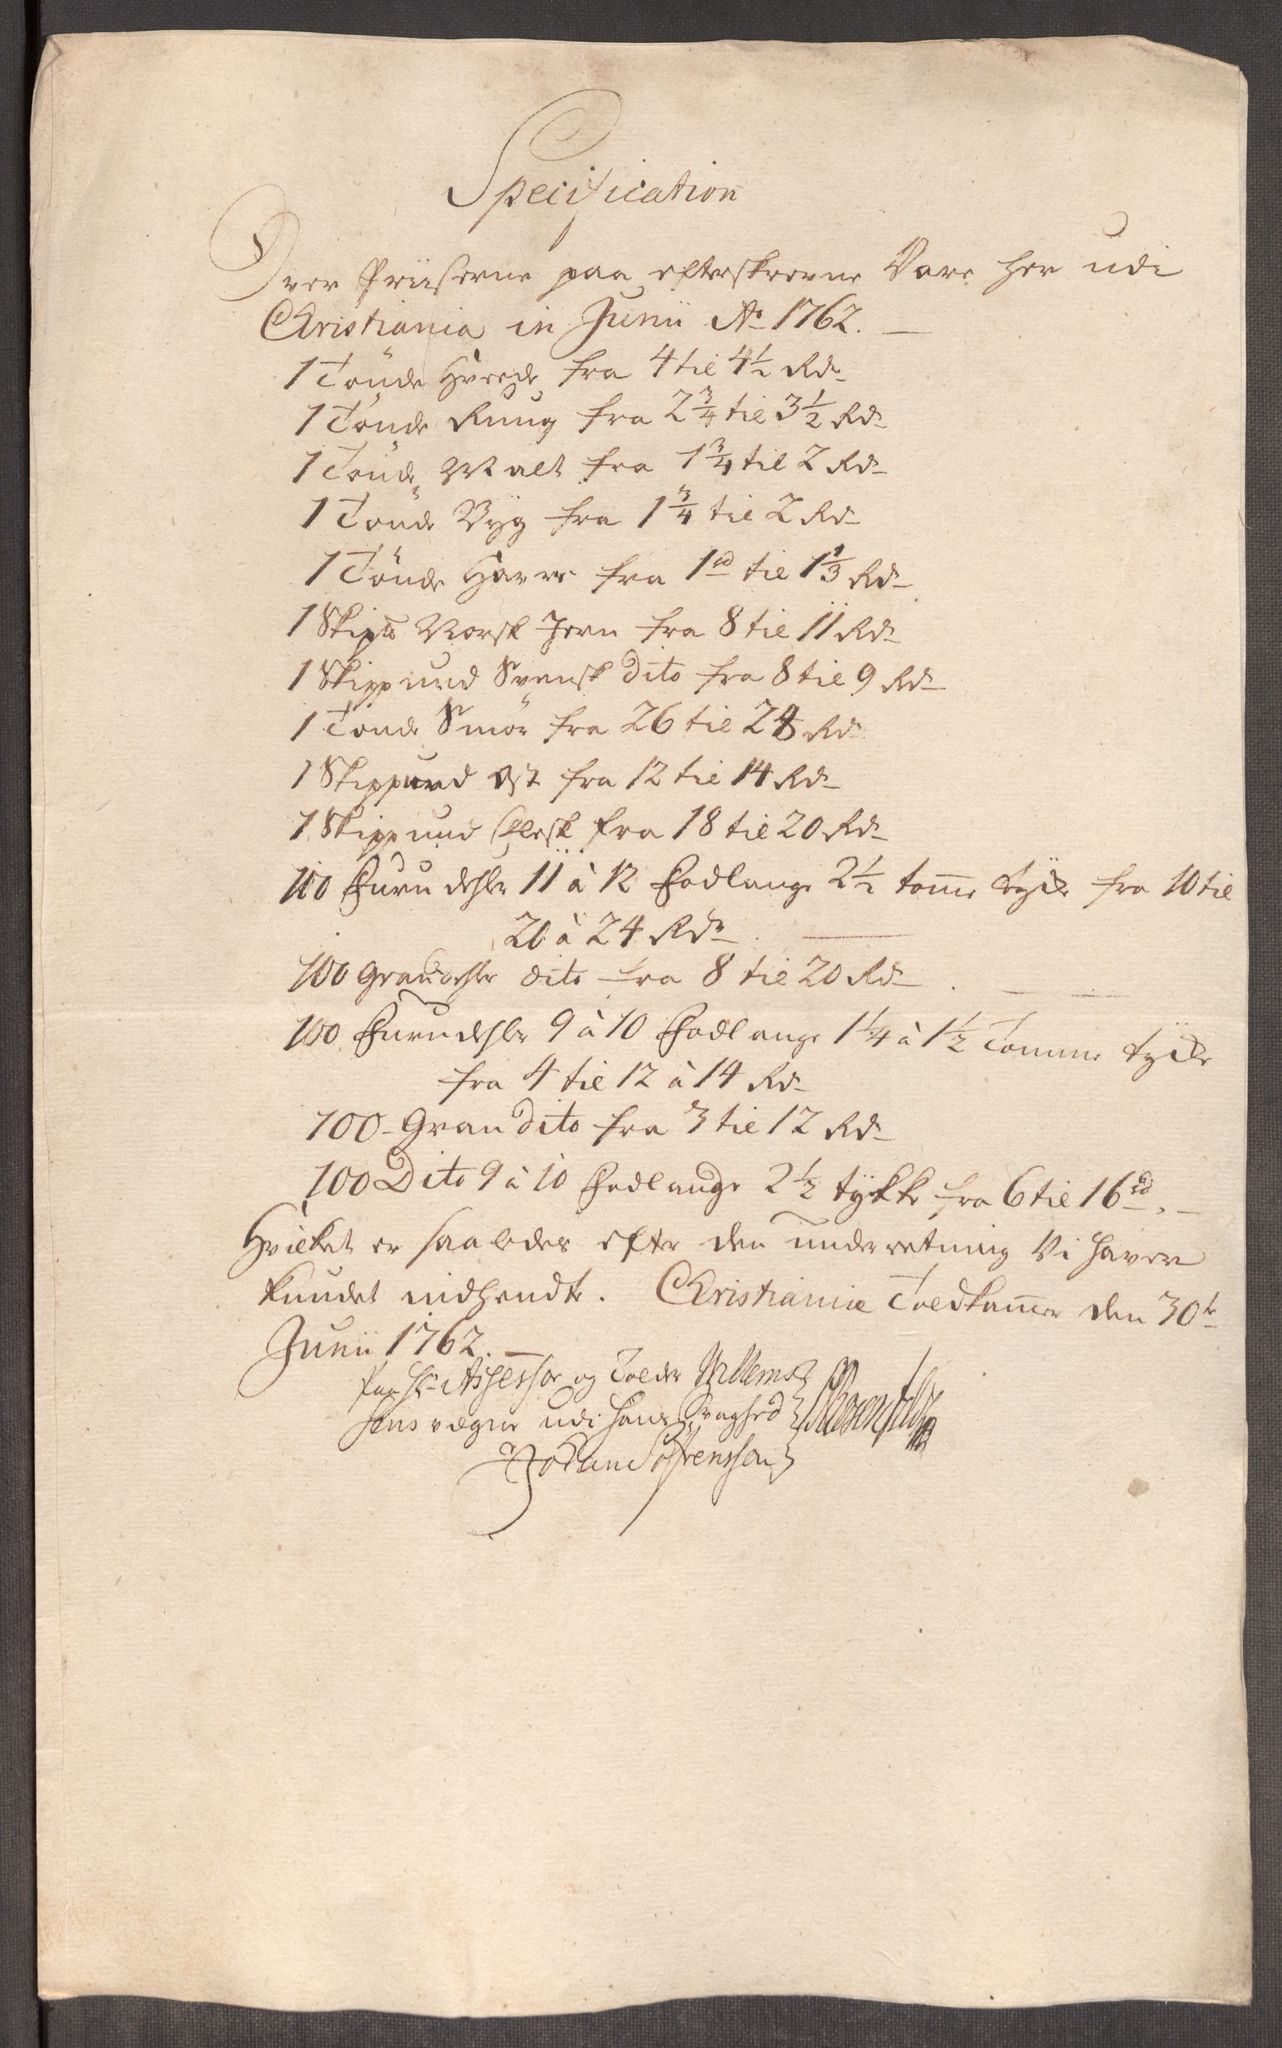 Specification
Over Priiserne paa efterskrevne Vare her udi
Christiania in Junii Ao 1762. —
1 Tönde Hvede fra 4 til 4½ Rdr
1 Tönde Ruug fra 2¾ til 3½ Rdr
1 Tönde Malt fra 1¾ til 2 Rdr
1 Tönde Byg fra 1¾ til 2 Rdr
1 Tönde Havre fra 1rd til 1⅓ Rdr
1 Skip℔ Norsk Jern fra 8 til 11 Rdr
1 Skippund Svensk dito fra 8 til 9 Rdr
1 Tönde Smör fra 26 til 28 Rdr
1 Skippund Ost fra 12 til 14 Rdr
1 Skippund Flesk fra 18 til 20 Rdr
100 Furu dehler 11 à 12 Fodlange 2½ tome tycke fra 10 til
20 à 24 Rdr
100 Grandehler dito fra 8 til 20 Rdr
100 Furu dehler 9 à 10 Fodlange 1¼ à 1½ Tomme tycke
fra 4 til 12 à 14 Rdr
100 Gran dito fra 3 til 12 Rdr
100 Dito 9 à 10 Fodlange 2½ tykke fra 6 til 16 rd. —
Hvilket er saaledes efter den underretning Vi haver
kundet indhendte. Christianiæ Toldkamer den 30te
Junii 1762. —
Paa Hr Assessor og Tolder Willemsens
vegne udi hans Svaghed
Rosenfeldt
Johan Söfrenssen